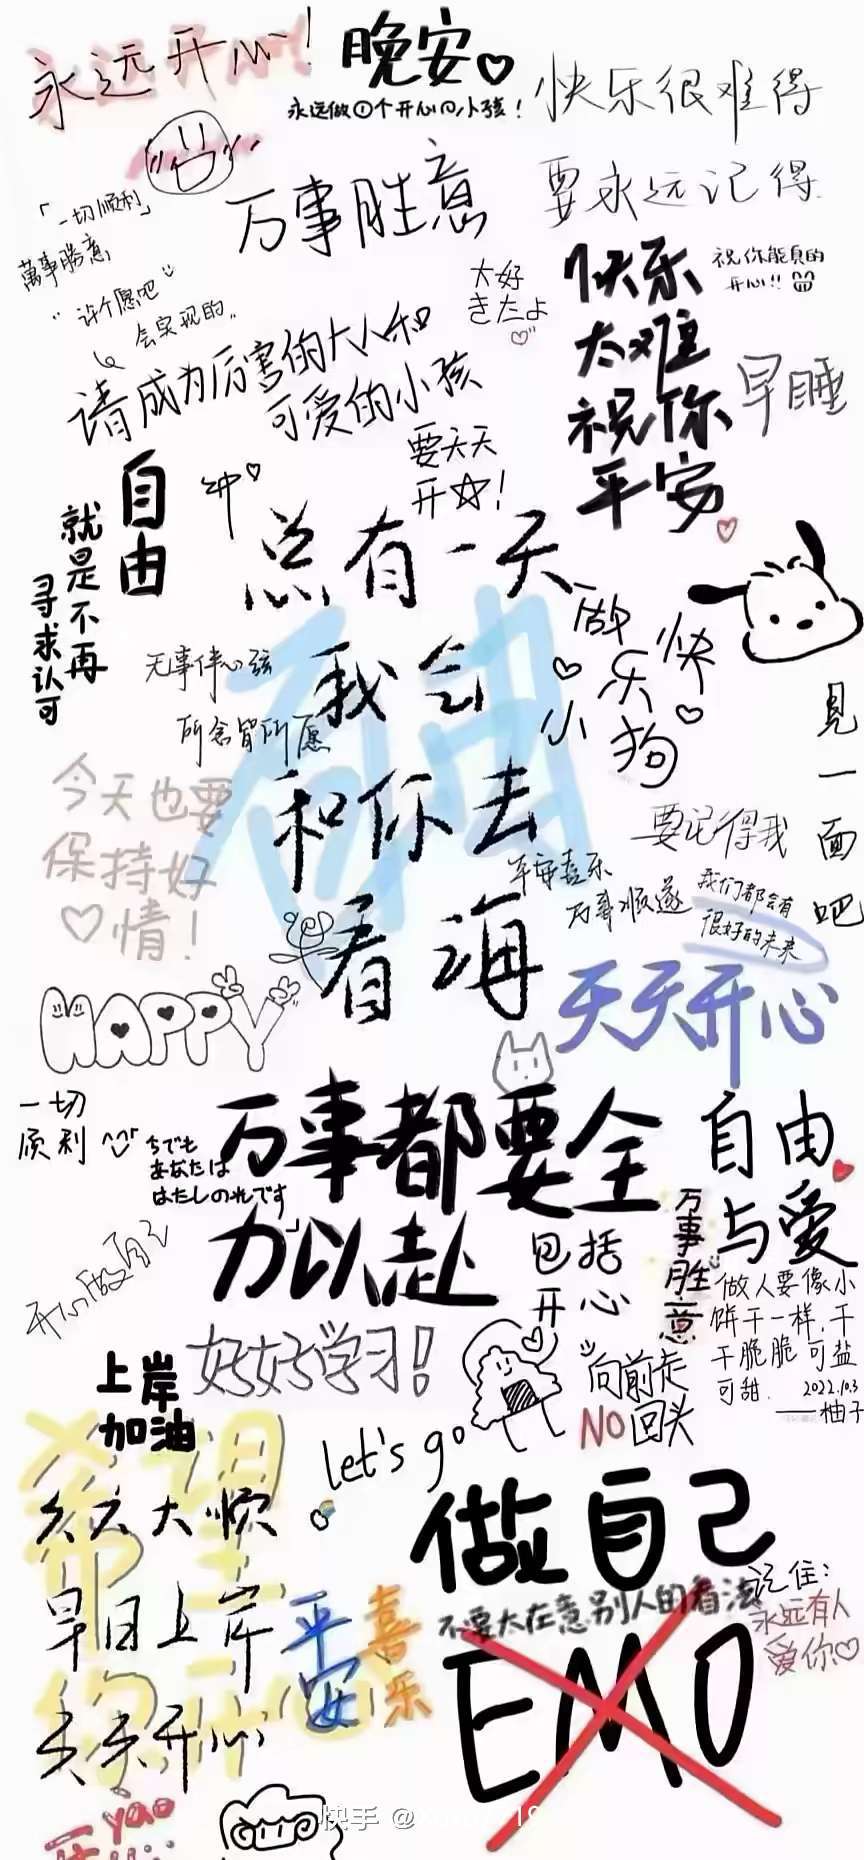 永远开心！
晚安
永远做1个开心的小孩！
快乐很难得
要永远记得
万事胜意
「一切顺利」
萬事勝意
许个愿吧
会实现的..
请成为厉害的大人和
可爱的小孩
大好
きだよ
快乐
太难
祝你
平安
祝你能真的
开心!!
早睡
要天天
开☆！
自由
就是不再
寻求认可
冲
总有一天
我会
和你去
看海
自由
无事伴心弦
所念皆所愿
做
快乐
小狗
见一面吧
今天也要
保持好
心情！
要记得我
平安喜乐
万事顺遂
我们都会有
很好的未来
天天开心
HAPPY
一切
顺利
ちでも
あなたは
はたしの光です
万事都要全
力以赴
包括
开心
自由
与爱
万事胜意
做人要像小
饼干一样,干
干脆脆可盐
可甜.
2022.10.3
——柚子
开心做自己
好好学习！
上岸
加油
向前走
NO回头
let's go
希望
你
天天大顺
早日上岸
天天开心
平安
喜乐
做自己
不要太在意别人的看法
EMO
记住：
永远有人
爱你
yao
快手